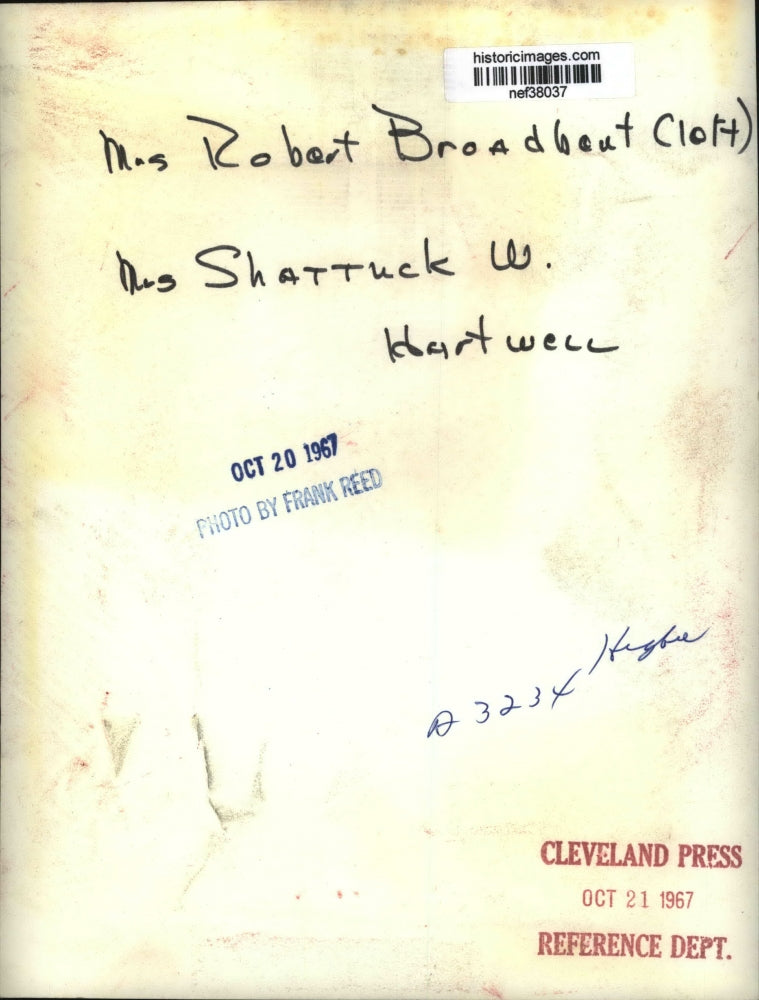 historicimages.com
nef38037
Mrs Robert Broadbent (left)
Mrs Shattuck W.
Hartwell
OCT 20 1967
PHOTO BY FRANK REED
Higbee
A 3234
CLEVELAND PRESS
OCT 21 1967
REFERENCE DEPT.